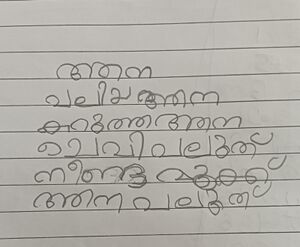 ആന
വലിയ ആന
കറുത്ത ആന
ചെവി വലുത്
നീണ്ട
ആന വലുത്